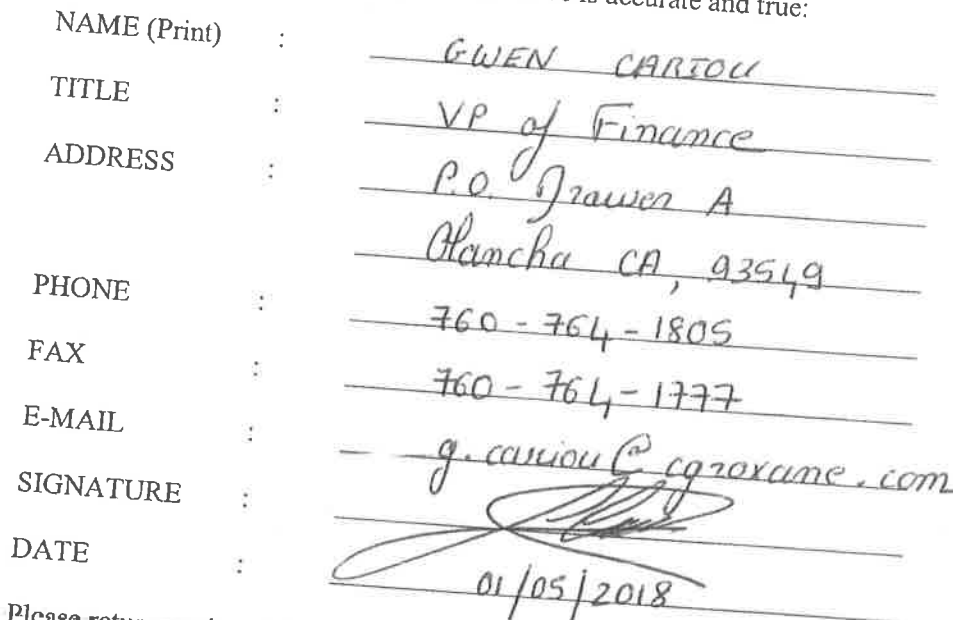 is accurate and true:
NAME (Print) : GWEN CARIOU
TITLE : VP of Finance
ADDRESS : P.O. Drawer A
Olancha CA, 93549
PHONE : 760-764-1805
FAX : 760-764-1777
E-MAIL : g.cariou@cgroxane.com
SIGNATURE :
DATE : 01/05/2018
Please